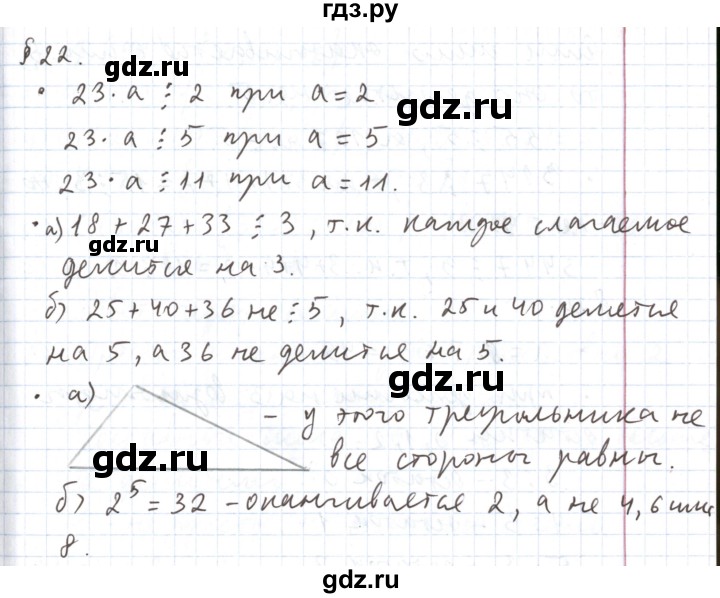 гдз.ру
§ 22.
• 23·a ⋮ 2 при a = 2
23·a ⋮ 5 при a = 5
23·a ⋮ 11 при a = 11.
• а) 18 + 27 + 33 ⋮ 3, т.к. каждое слагаемое
делится на 3.
б) 25 + 40 + 36 не ⋮ 5, т.к. 25 и 40 делятся
на 5, а 36 не делится на 5.
• а) – у этого треугольника не
все стороны равны.
б) 2⁵ = 32 – оканчивается 2, а не 4, 6 или
8.
gdz.ru
gdz.ru
gdz.ru
gdz.ru
gdz.ru
gdz.ru
gdz.ru